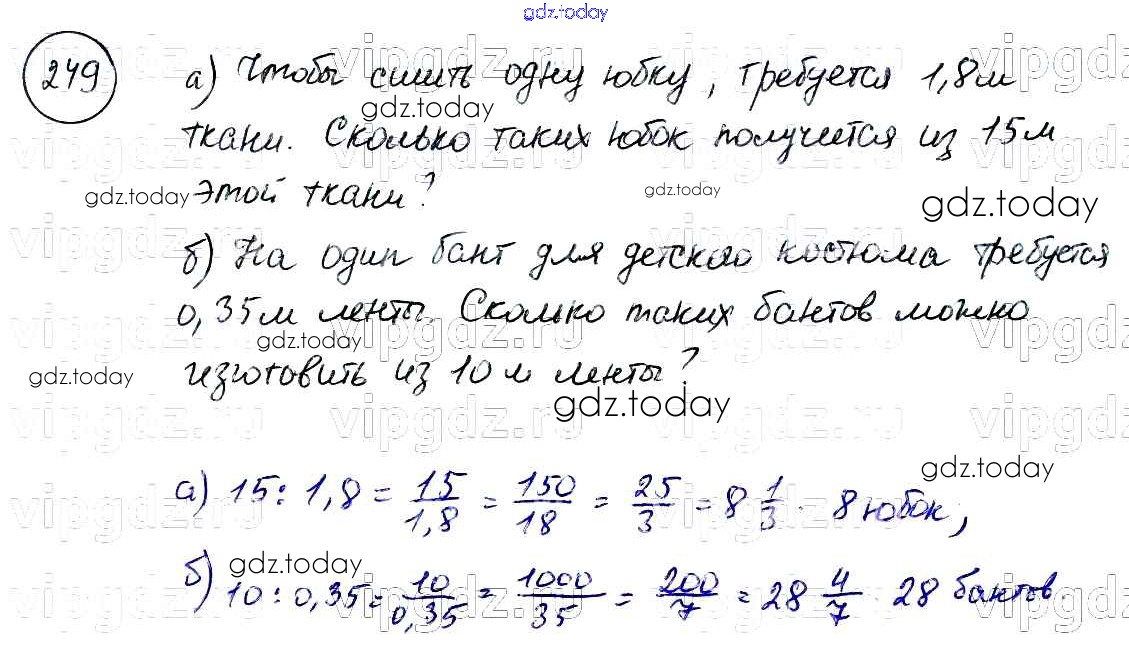 gdz.today
249 а) Чтобы сшить одну юбку, требуется 1,8 м
gdz.today
ткани. Сколько таких юбок получится из 15 м
gdz.today этой ткани? gdz.today gdz.today
б) На один бант для детского костюма требуется
0,35 м ленты. Сколько таких бантов можно
gdz.today
gdz.today изготовить из 10 м ленты?
gdz.today
gdz.today
а) 15 : 1,8 = 15/1,8 = 150/18 = 25/3 = 8 1/3. 8 юбок,
gdz.today
б) 10 : 0,35 = 10/0,35 = 1000/35 = 200/7 = 28 4/7 28 бантов
vipgdz.ru vipgdz.ru vipgdz.ru vipgdz.ru